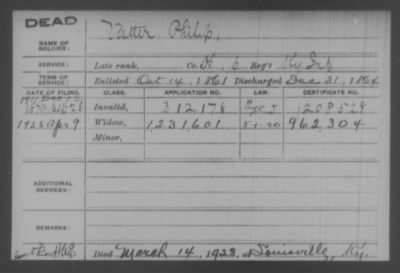 DEAD
NAME OF SOLDIER: Vatter Philip,
SERVICE: Late rank, Co. A, 6 Reg't Ky Inf
TERM OF SERVICE: Enlisted Oct 14, 1861 Discharged Dec 31, 1864
DATE OF FILING. CLASS. APPLICATION NO. LAW. CERTIFICATE NO.
Invalid, 312178 1208528
1928 Apr 9 Widow, 1231601 5-1-20 962,304
Minor,
ADDITIONAL SERVICES:
REMARKS:
Died March 14, 1928, at Louisville, Ky.